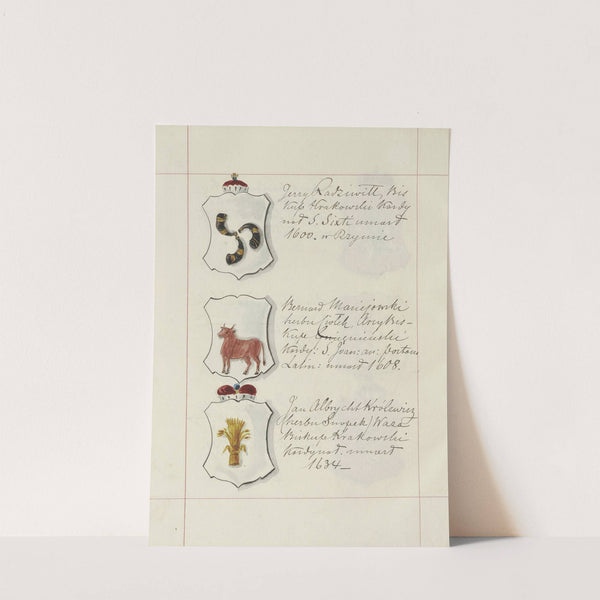 Jerzy Radziwiłł, Bis
kup Krakowski Kardy
nał S. Sixti umarł
1600. w Rzymie
Bernard Maciejowski
herbu Ciołek Arcy Bis-
kup Gnieznieński
Kardy: S. Joan: an: Portam
Latin: umarł 1608.
Jan Albrycht Królewicz
(herbu Snopek) Waza
Biskup Krakowski
Kardynał. umarł
1634_